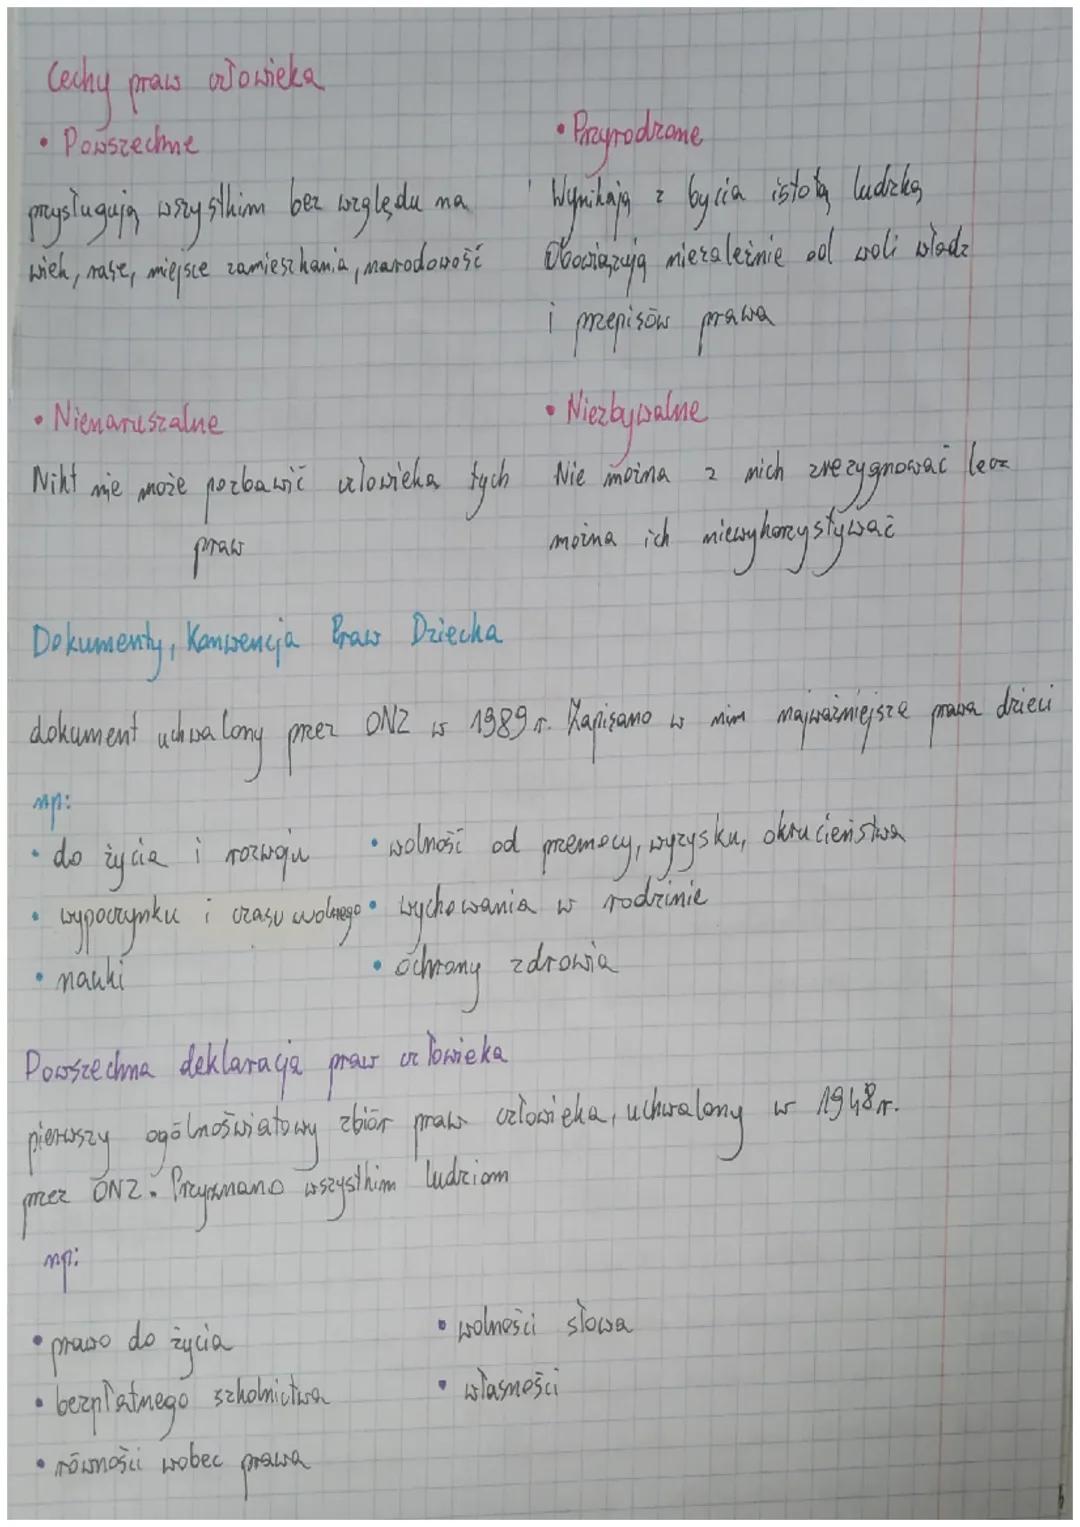 Cechy praw człowieka
• Powszechne
przysługują wszystkim bez względu na
wiek, rasę, miejsce zamieszkania, narodowość
• Przyrodzone
Wynikają z bycia istotą ludzką
Obowiązują niezależnie od woli władz
i przepisów prawa
• Nienaruszalne
Nikt nie może pozbawić człowieka tych
praw
• Niezbywalne
Nie można z nich zrezygnować lecz
można ich niewykorzystywać
Dokumenty, Konwencja Praw Dziecka
dokument uchwalony przez ONZ w 1989 r. Zapisano w nim najważniejsze prawa dzieci
np:
• do życia i rozwoju
• wypoczynku i czasu wolnego
• nauki
• wolność od przemocy, wyzysku, okrucieństwa
• wychowania w rodzinie
• ochrony zdrowia
Powszechna deklaracja praw człowieka
pierwszy ogólnoświatowy zbiór praw człowieka, uchwalony w 1948 r.
przez ONZ. Przyznano wszystkim ludziom
np:
• prawo do życia
• bezpłatnego szkolnictwa
• równości wobec prawa
• wolności słowa
• własności